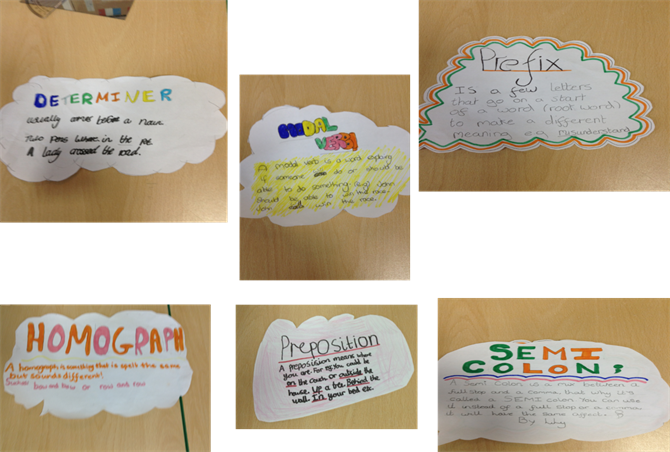 DETERMINER
usually comes before a noun.
Two pens where in the pot.
A lady crossed the road.
MODAL
VERBS
A modal verb is a word
if someone do or should be
able to do something e.g. John
should be able to win the race
John win the race.
Prefix
Is a few letters
that go on a start
of a word (root word)
to make a different
meaning e.g. Misunderstand
HOMOGRAPH
A homograph is something that is spelt the same
but sounds different!
bow and bow or row and row
Preposition
A preposition means where
you are. For eg You could be
on the couch or outside the
house. Up a tree. Behind the
wall. In your bed etc.
SEMI
COLON;
A Semi Colon is a mix between a
full stop and a comma, that why it's
called a SEMI colon. You can use
it instead of a full stop or a comma,
it will have the same affect.
By